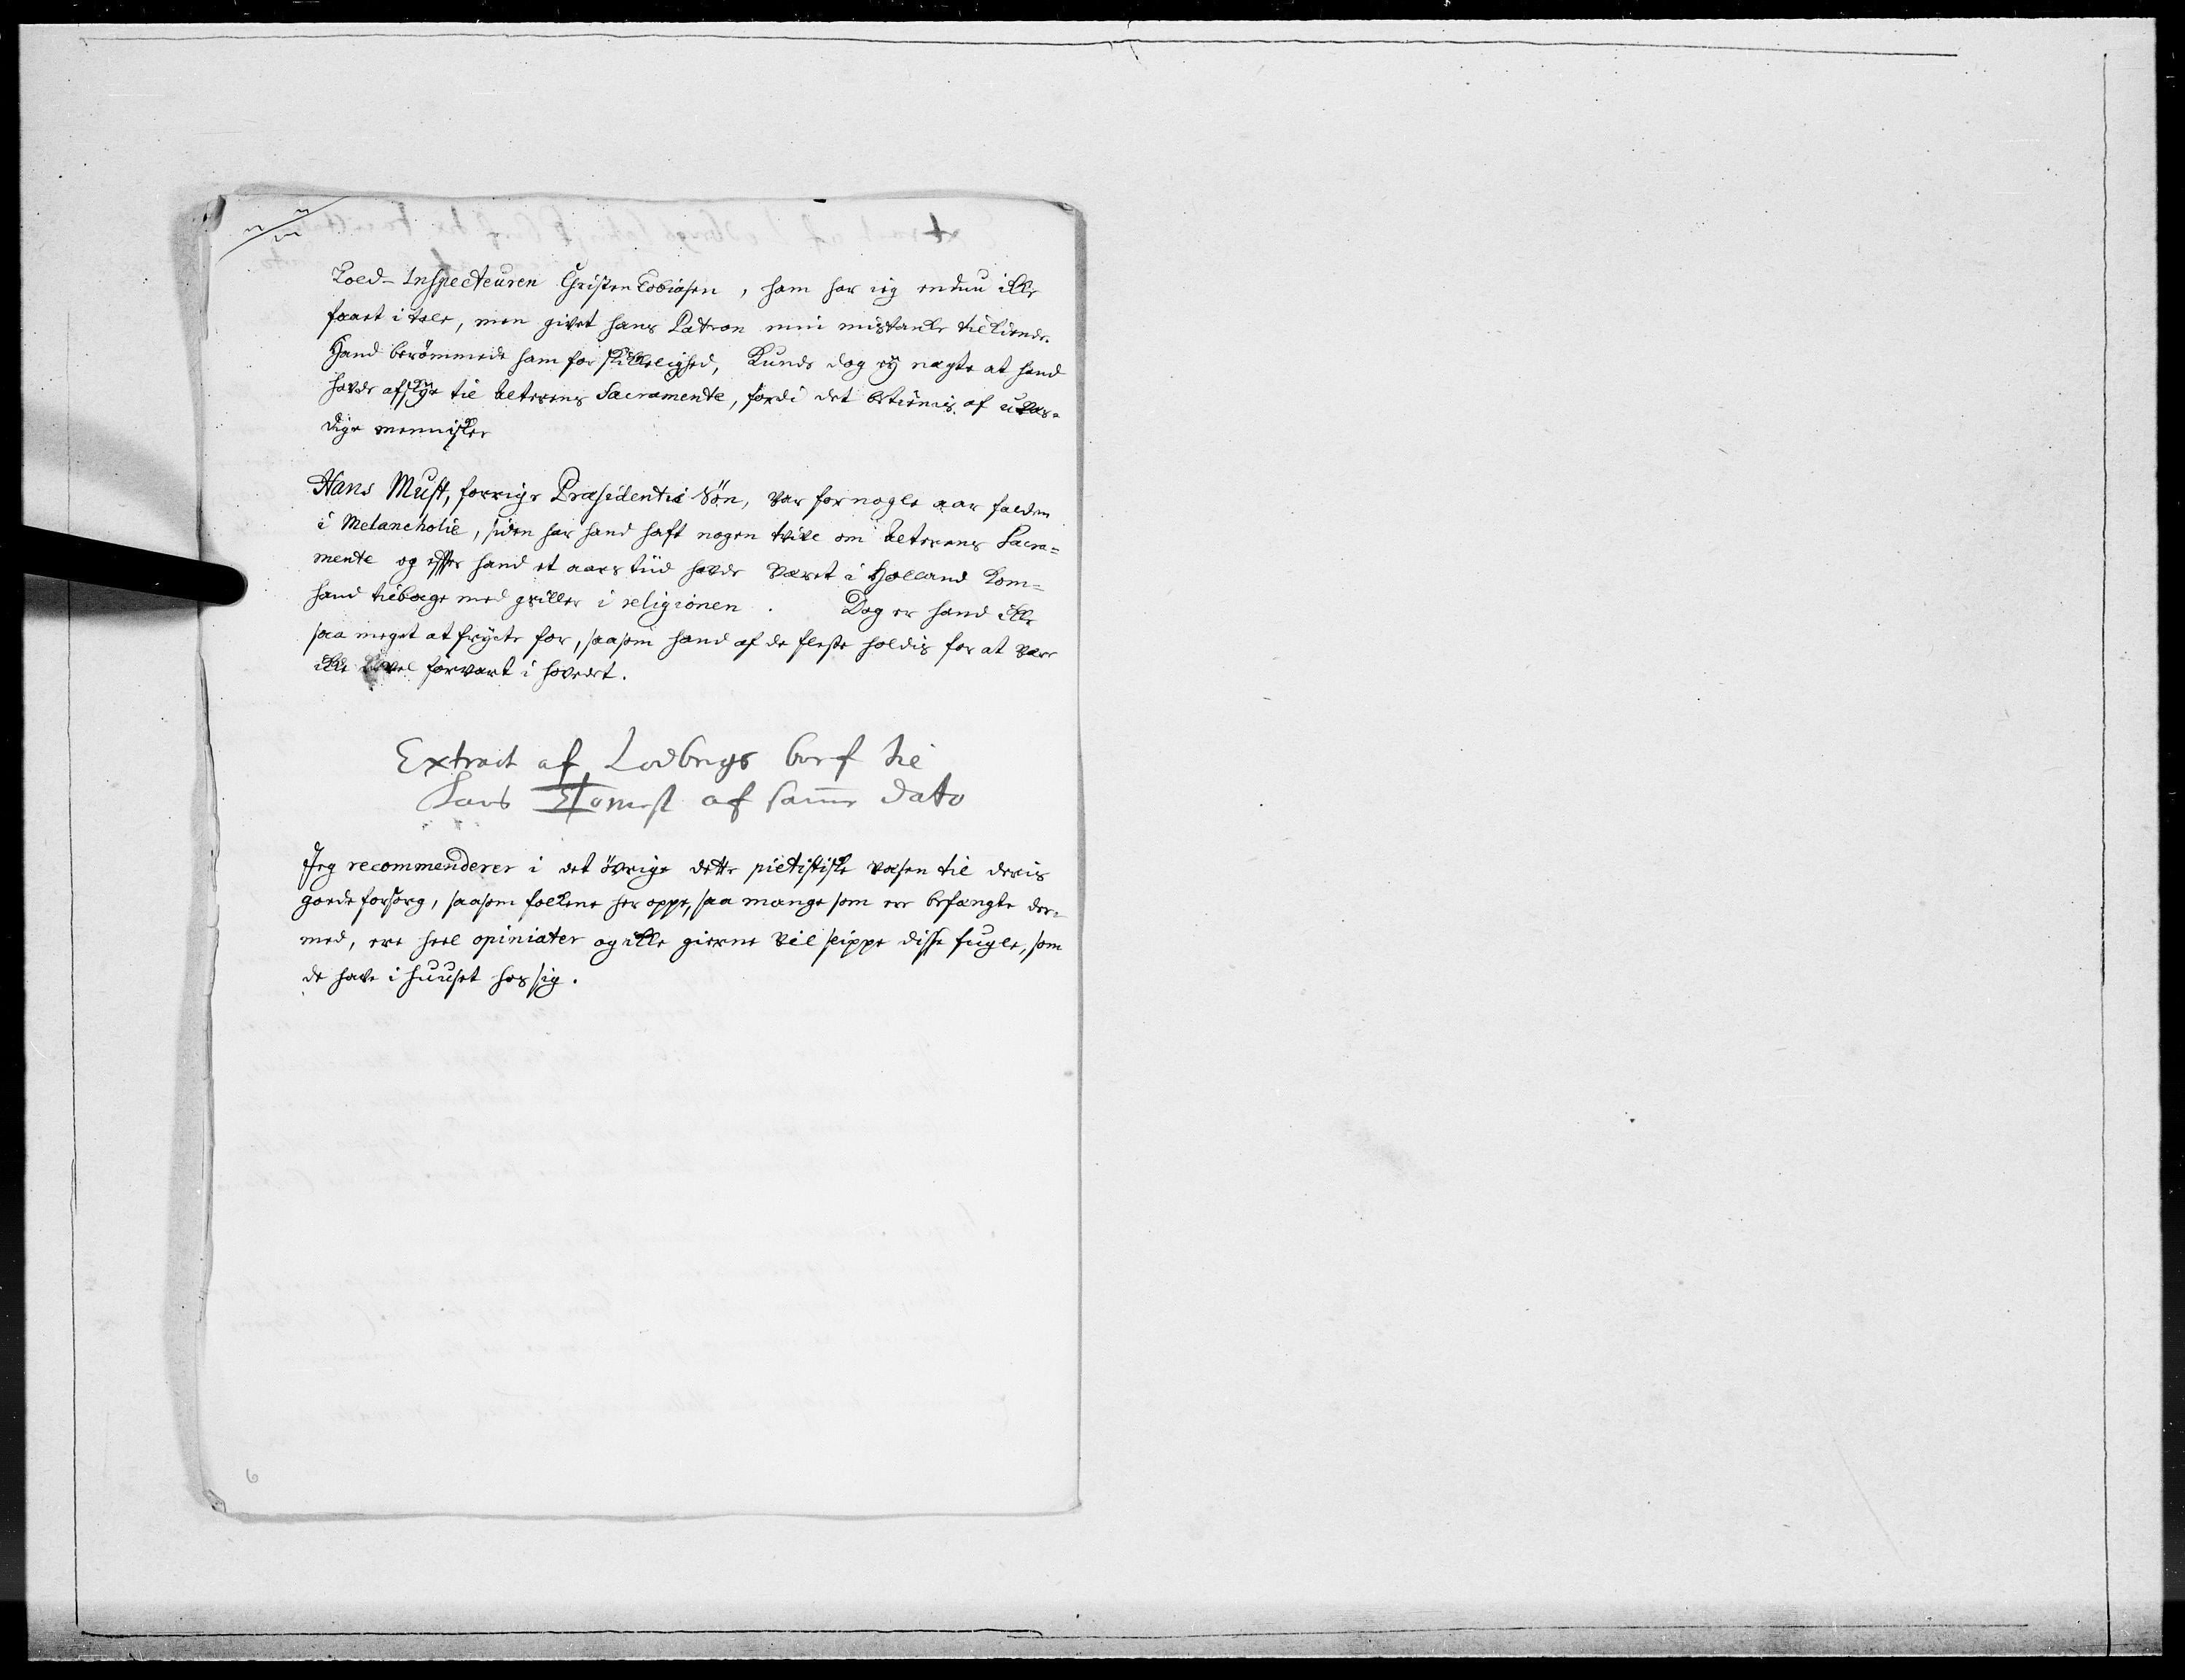 Told-Inspecteuren Christen Tobiasen, ham har ieg endnu icke
faaet i tale, men givet hans Patron min mistanke tilkiende.
Hand berömmede ham for skickelighed, kunde dog ej nægte at hand
havde afskye til alterens Sacramente, fordi det betienis af uvær=
dige mennisker
Hans Must, forrige Præsidentis Sön, var for nogle aar falden
i Melancholie, siden har hand haft nogen tvivl om alterens Sacra=
mente og efter hand et aars tiid havde været i Holland kom=
hand tilbage med griller i religionen. Dog er hand icke
saa meget at frycte for, saasom hand af de fleste holdis for at være
icke vel forvart i hovedet.
Extract af Lodbergs bref til
Hans af samme dato
Jeg recommenderer i det övrige dette pietistiske væsen til deris
goede forsorg, saasom folkene her oppe, saa mange som ere befængte der=
med, ere heel opiniater og icke gierne vil slippe disse fugle, som
de have i huuset hos sig.
6